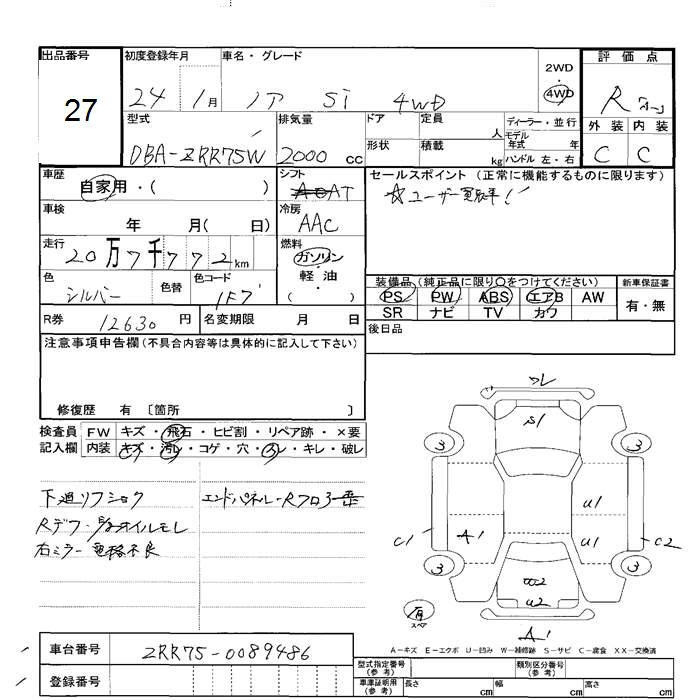 出品番号 初度登録年月 車名・グレード 評価点
27
24年1月 ノア Si 4WD
2WD・4WD
R
型式 排気量 ドア 定員 人 ディーラー・並行
モデル年式 年
外装 内装
DBA-ZRR75W 2000cc 形状 積載 kg ハンドル 左・右 C C
車歴 シフト セールスポイント (正常に機能するものに限ります)
自家用・( ) AT ☆ユーザー買取車!
車検 冷房
年 月( 日) AAC
走行 燃料
20万7千772km ガソリン・軽油
( )
色 シルバー 色替 色コード 1F7
装備品(純正品に限り○をつけてください) 新車保証書
PS PW ABS エアB AW 有・無
SR ナビ TV カワ
R券 12630円 名変期限 月 日 後日品
注意事項申告欄(不具合内容等は具体的に記入して下さい)
修復歴 有 〔箇所 〕
検査員記入欄 FW キズ・飛石・ヒビ割・リペア跡・×要
内装 キズ・汚レ・コゲ・穴・スレ・キレ・破レ
下廻リフショク エンドパネル・Rフロ
Rデフ・ オイルモレ
右ミラー電格不良
S1
3 3
U1
C1 A1 U1 C2
3 3
U2
スペア
A1
A-キズ E-エクボ U-凹み W-補修跡 S-サビ C-腐食 XX-交換済
車台番号 ZRR75-0089486
登録番号
型式指定番号(参考) 類別区分番号(参考)
車庫証明用(参考) 長さ cm 幅 cm 高さ cm